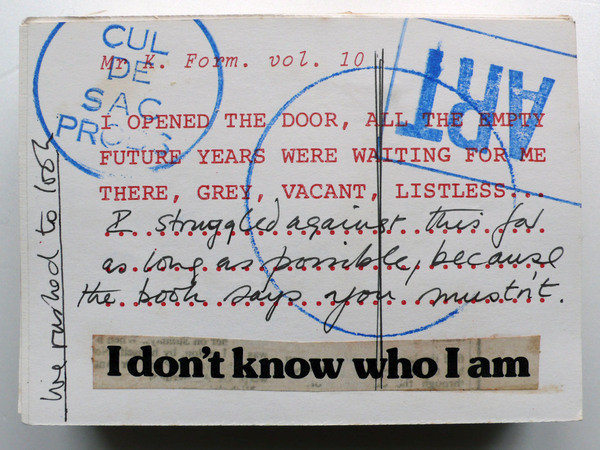 CUL
DE
SAC
PRO
ART
Mr K. Form. vol. 10
I OPENED THE DOOR, ALL THE EMPTY
FUTURE YEARS WERE WAITING FOR ME
THERE, GREY, VACANT, LISTLESS...
I struggled against this for
as long as possible, because
the book says you mustn't.
I don't know who I am
rushed to look